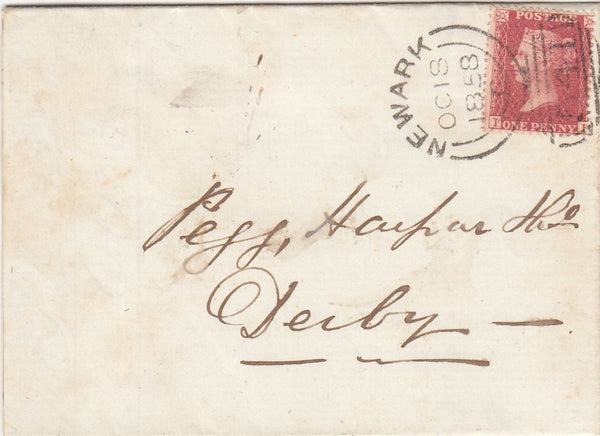 POSTAGE
ONE PENNY
NEWARK
OC 18
1858
Pegg, Harpur &
Derby